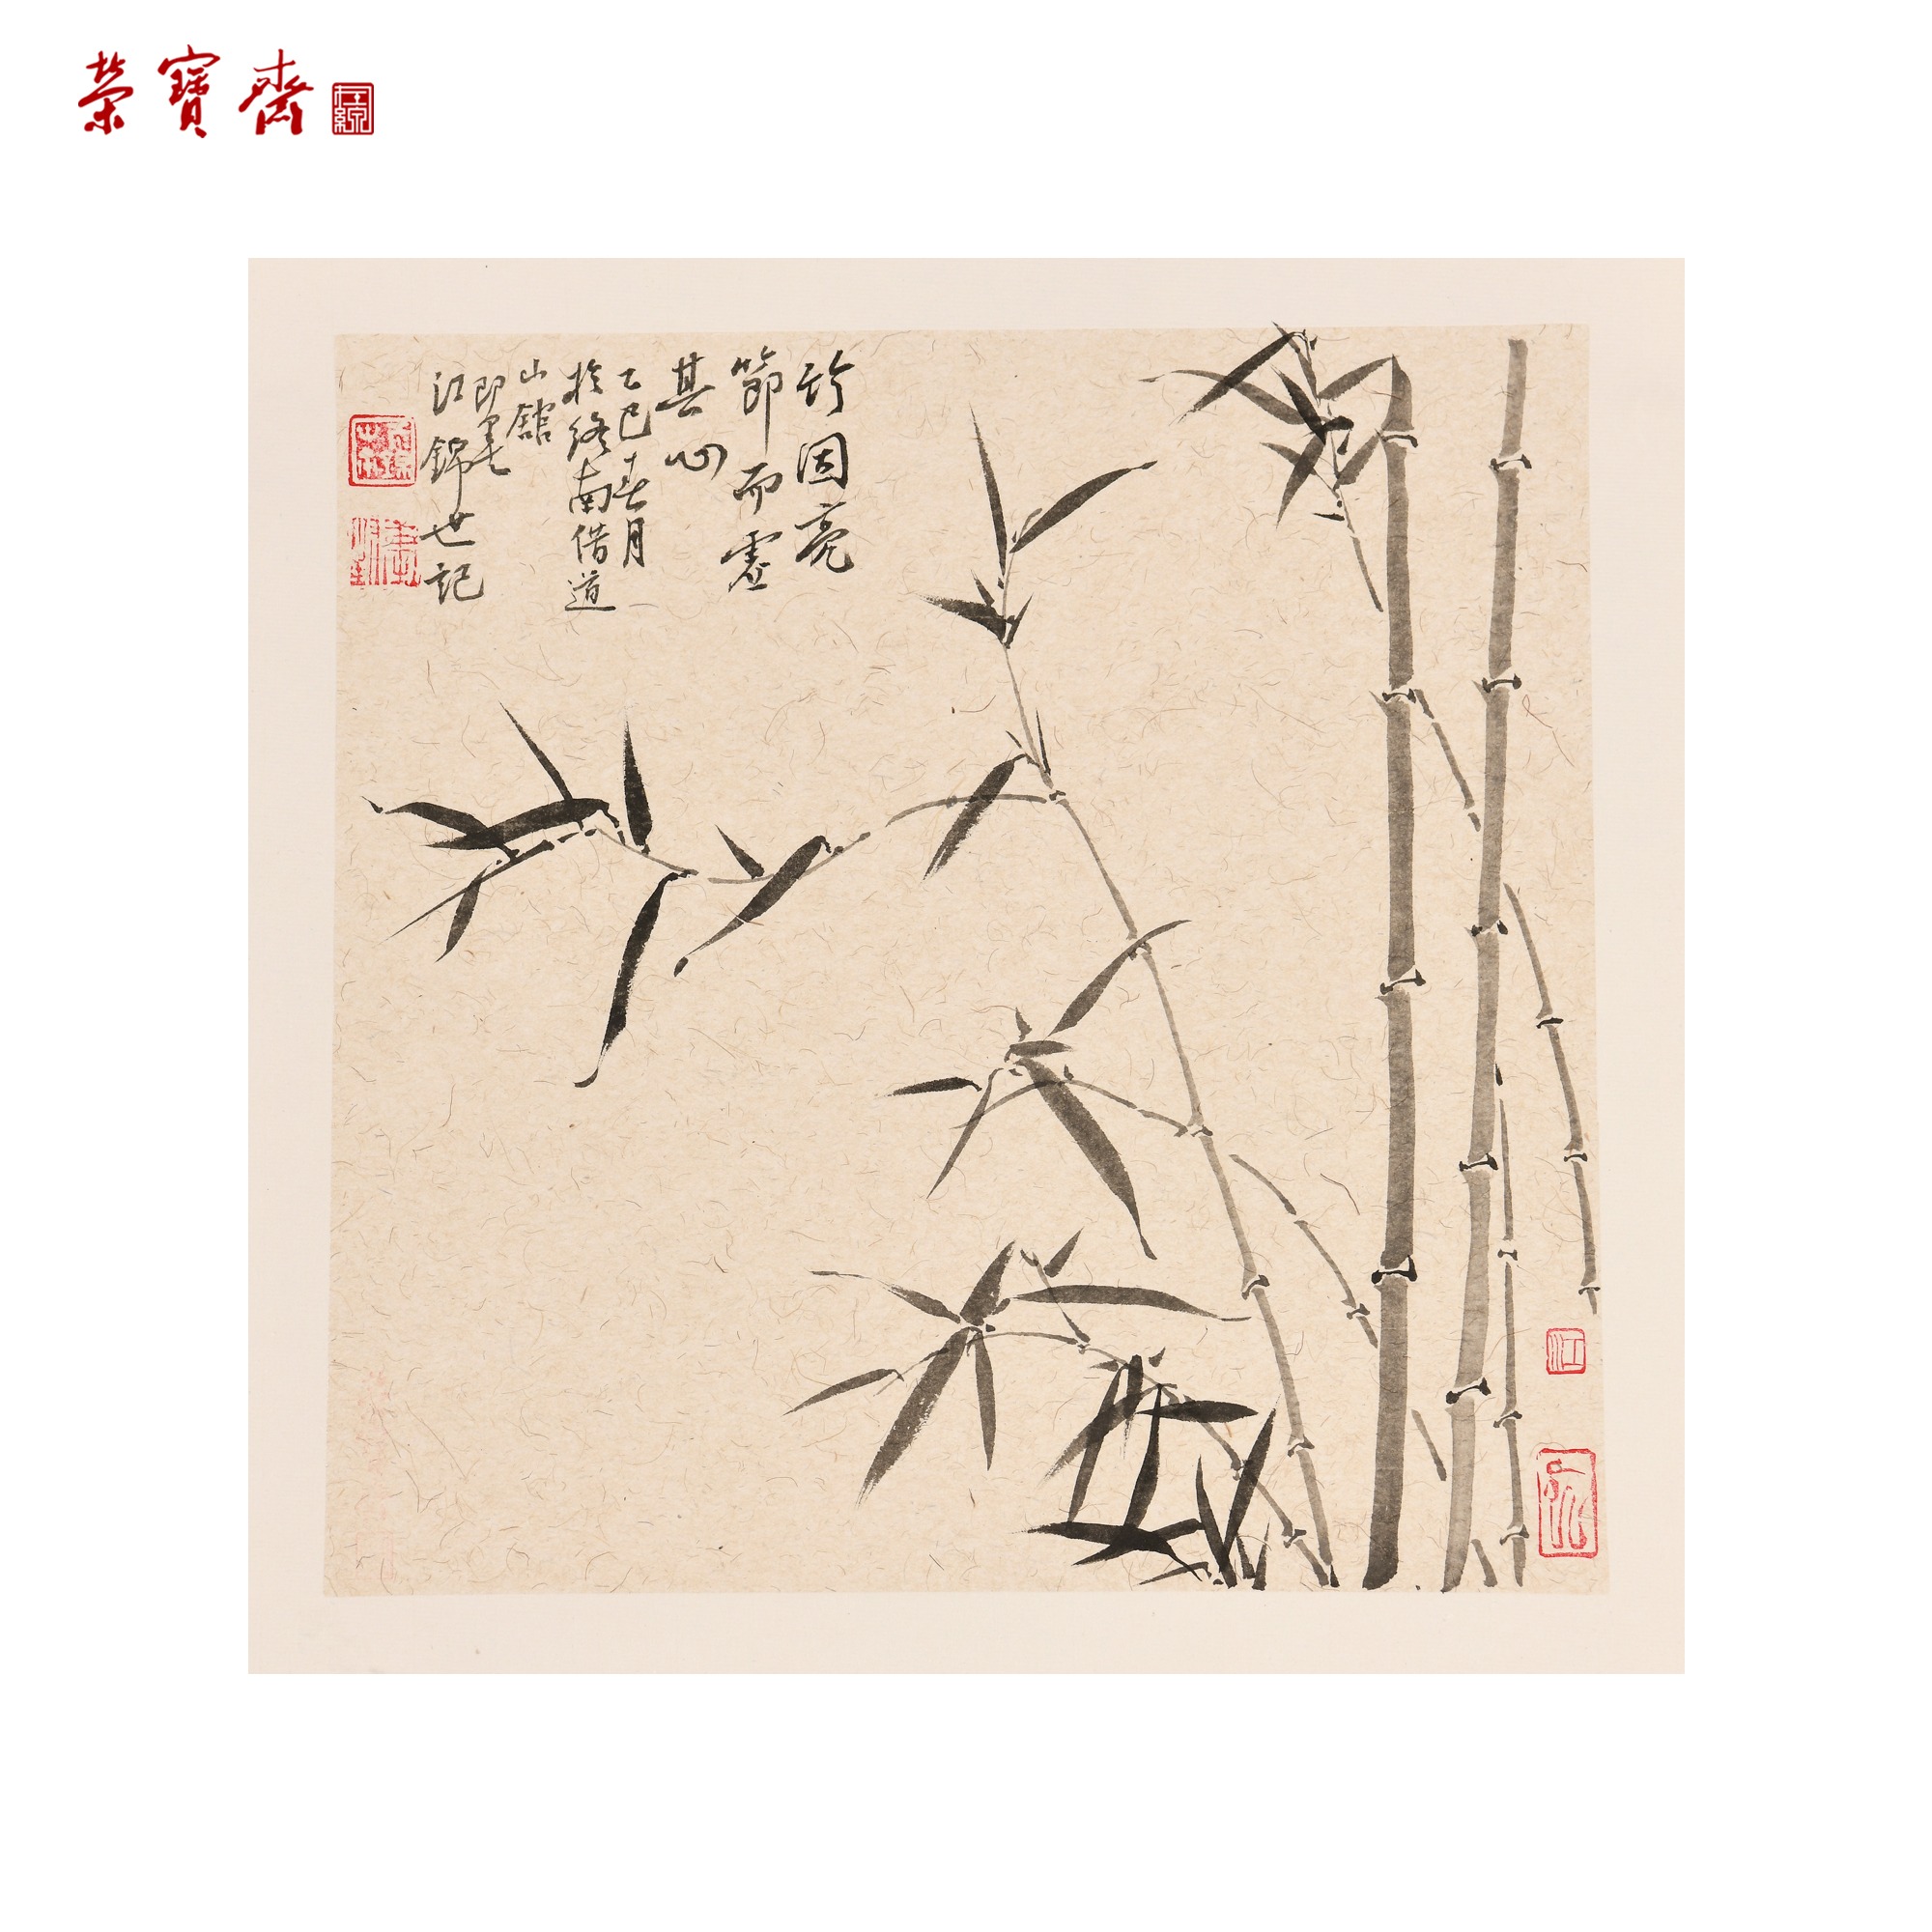 榮寶齋
在線
竹因亮
節而虛
其心
乙巳春月
於終南借道
山館
即墨
江錦世記
江